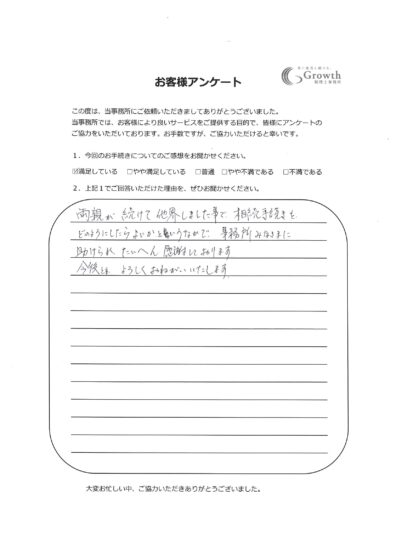 お客様アンケート
Growth
税理士事務所
この度は、当事務所にご依頼いただきましてありがとうございました。
当事務所では、お客様により良いサービスをご提供する目的で、皆様にアンケートの
ご協力をいただいております。お手数ですが、ご協力いただけると幸いです。
1．今回のお手続きについてのご感想をお聞かせください。
☑満足している □やや満足している □普通 □やや不満である □不満である
2．上記1でご回答いただけた理由を、ぜひお聞かせください。
両親が続けて他界しました事で 相続手続きを
どのようにしたらよいかと うなかで 事務所みなさまに
助けられ たいへん感謝しております
今後とも よろしくおねがいいたします
大変お忙しい中、ご協力いただきありがとうございました。